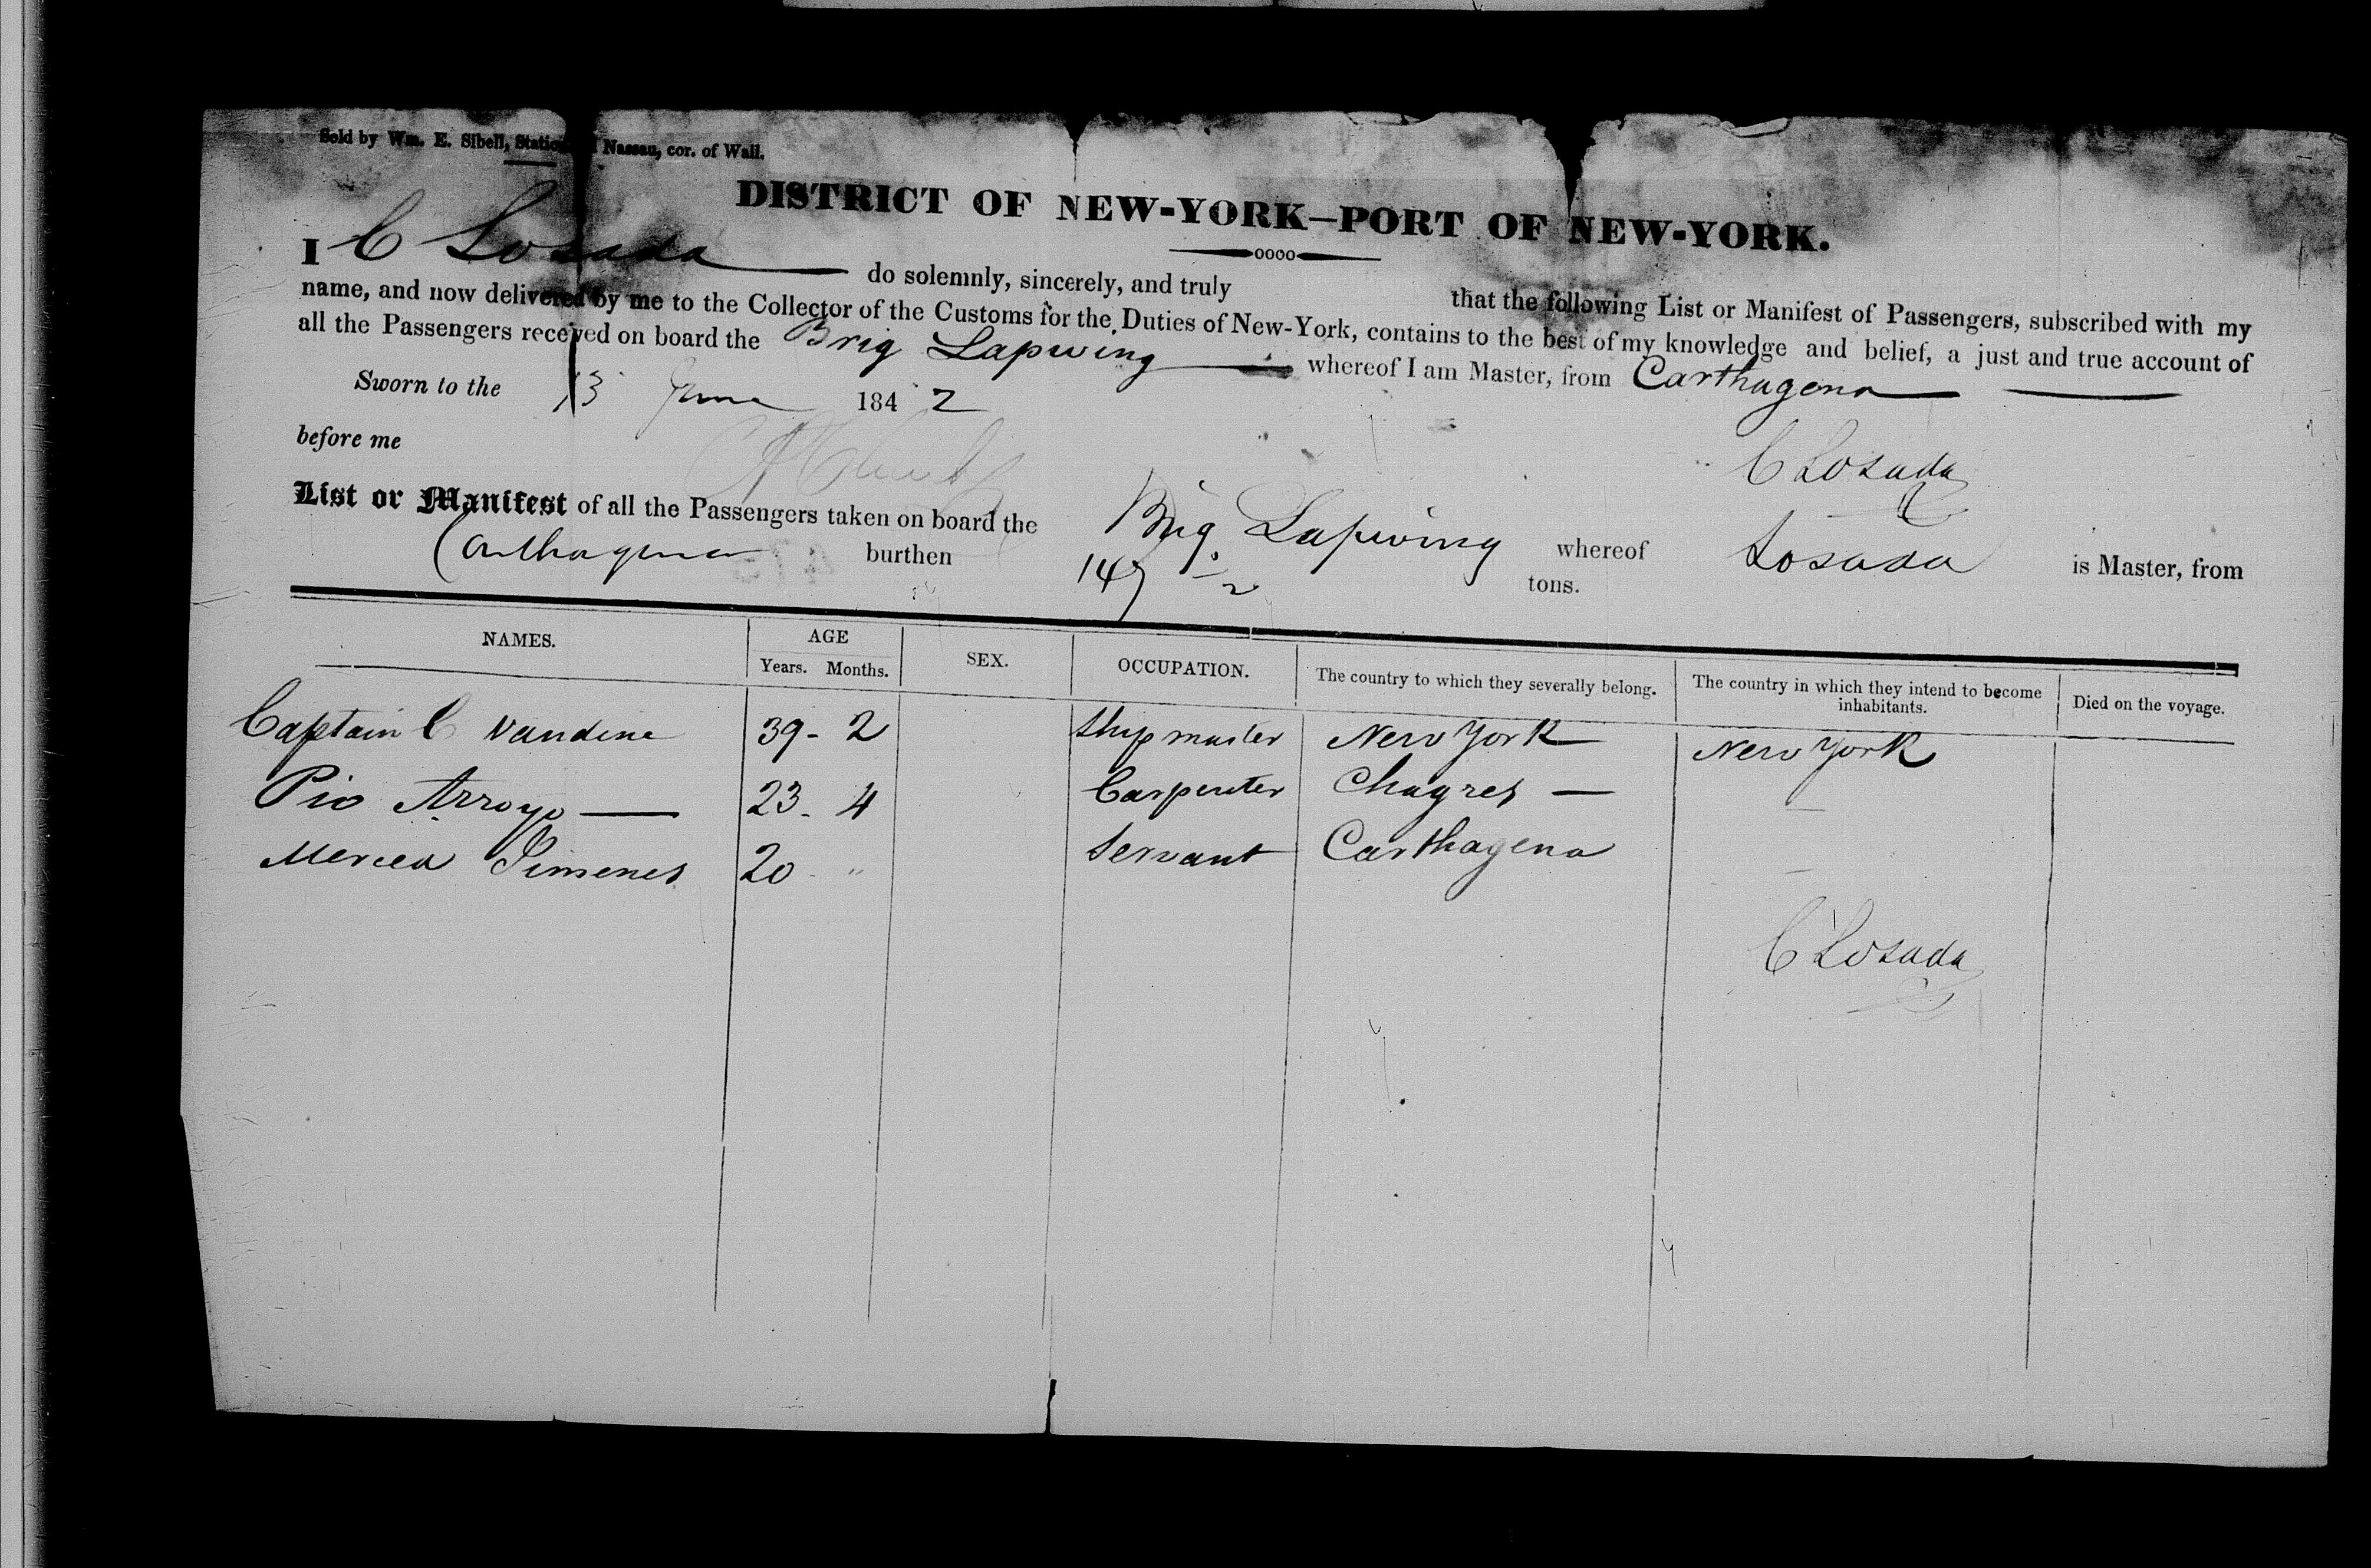 Sold by Wm. E. Sibell, Nassau, cor. of Wall.
DISTRICT OF NEW-YORK—PORT OF NEW-YORK.
oooo
I C Losada do solemnly, sincerely, and truly that the following List or Manifest of Passengers, subscribed with my
name, and now delivered by me to the Collector of the Customs for the Duties of New-York, contains to the best of my knowledge and belief, a just and true account of
all the Passengers received on board the Brig Lapwing whereof I am Master, from Carthagena
Sworn to the 13 June 1842
before me
C Losada
List or Manifest of all the Passengers taken on board the Brig Lapwing whereof Losada is Master, from
Carthagena burthen 147 tons.
NAMES. AGE SEX. OCCUPATION. The country to which they severally belong. The country in which they intend to become inhabitants. Died on the voyage.
Years. Months.
Captain C Vandine 39 - 2 Ship master New York New York
Pio Arroyo — 23 - 4 Carpenter Chagres — —
Merced Simenes 20 - " Servant Carthagena —
C Losada